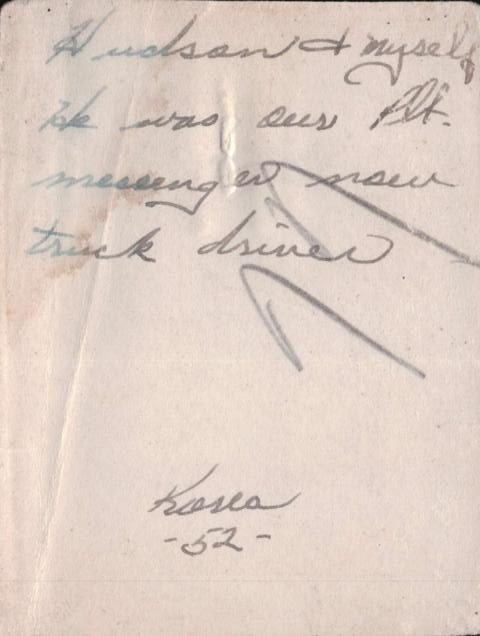 Hudson & myself
He was our Plt.
messenger now
truck driver
Korea
-52-